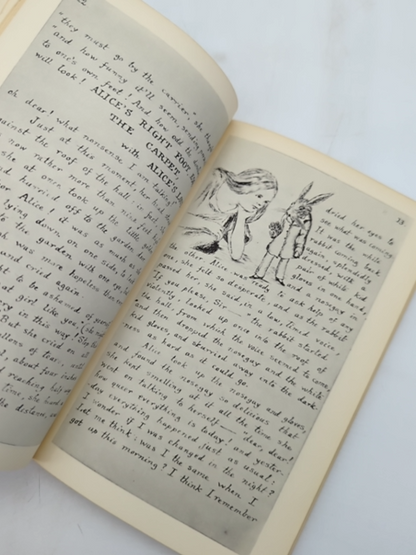 "they must go by the carrier," she tho
"and how funny it'll seem, sending
to one's own foot! And how odd the
will look! ALICE'S RIGHT FOOT
THE CARPET,
with ALICE'S L
oh dear! what nonsense I am talking
Just at this moment, her head
against the roof of the hall: in fact
now rather more than nine feet
she at once took up the little golden
and hurried off to the garden
Alice! it was as much as
lying down on one side, to
the garden with one eye,
was more hopeless than
and cried again.
ought to be ashamed of
great girl like you, (she
in this way! Stop this
But she cried on
gallons of tears, until
about four
reaching half
time, she heard
the distance,
13
dried her eyes to
see what was coming.
It was the white
rabbit coming back
again, splendidly
dressed, with a
pair of white kid
gloves in one hand,
and a nosegay in
the other. Alice was ready to ask help of any
one, she felt so desperate, and as the rabbit
passed her, she said, in a low, timid voice,
"If you please, Sir—" the rabbit started
violently, looked up once into the roof of
the hall, from which the voice seemed to come,
and then dropped the nosegay and the white
kid gloves, and skurried away into the dark-
ness as hard as it could go.
Alice took up the nosegay and gloves,
and found the nosegay so delicious that
she kept smelling at it all the time she
went on talking to herself— "dear, dear!
how queer everything is today! and yester-
day everything happened just as usual:
I wonder if I was changed in the night?
Let me think: was I the same when I
got up this morning? I think I remember